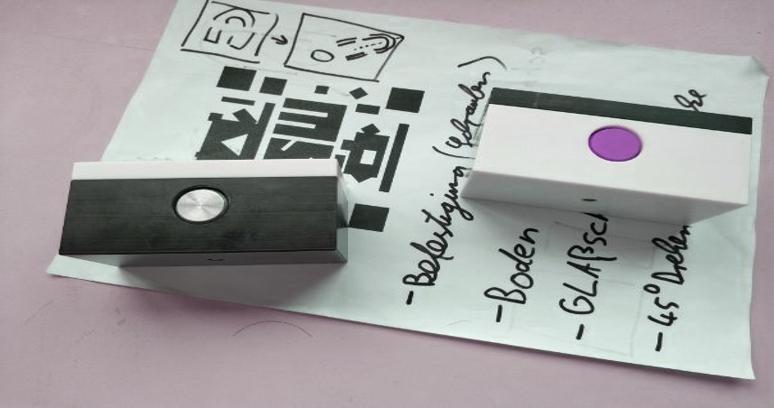 - Befestigung (Schrauben)
- Boden
- GLAßSC
- 45° Drehen